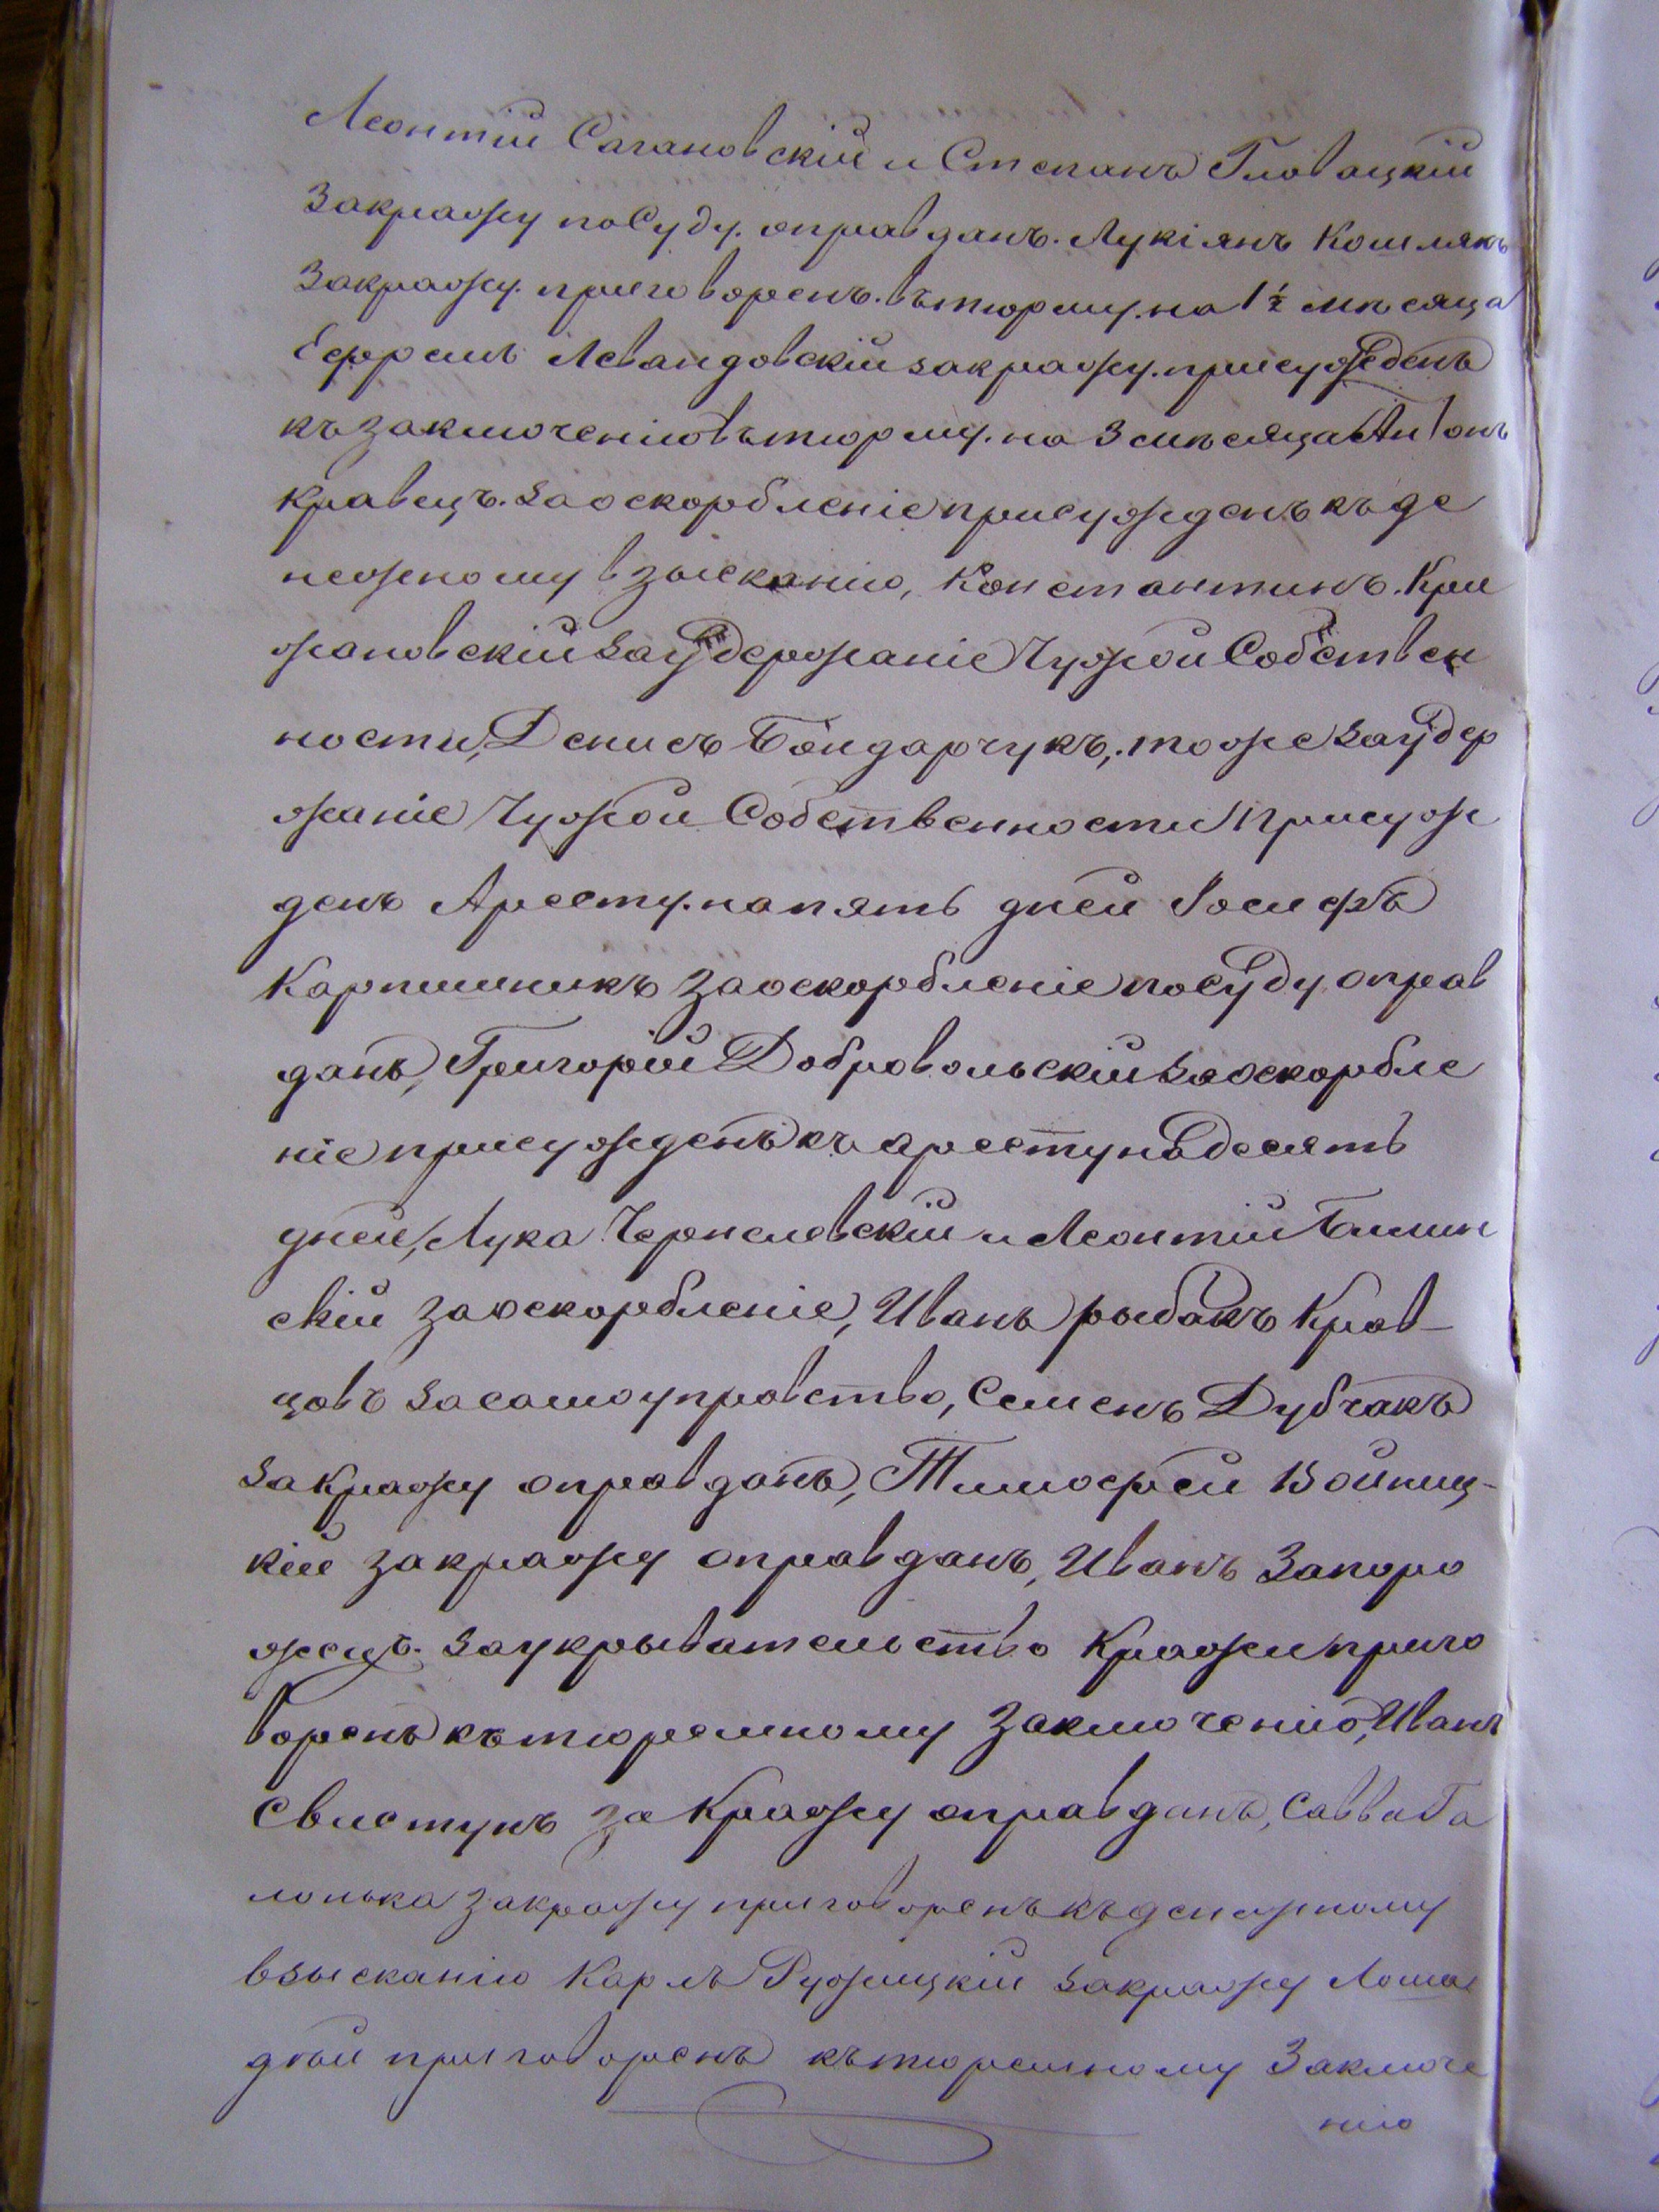 Леонтій Сагановскій и Степанъ Гловацкій
закражу по Суду. оправданъ. Лукіянъ Кошлякъ
Закражу. приговоренъ. въ тюрму. на 1½ мѣсяца
Ефремъ Левандовскій закражу. присужденъ
къ заключенію въ тюрму. на 3 мѣсяца Антонъ
Кравецъ. за оскорбленіе присужденъ къ де
нежному взысканію, Константинъ. Кри
жановскій за удержаніе Чужой Собствен
ности, Денисъ Бондарчукъ, тоже за удер
жаніе Чужой Собственности присуж
денъ Аресту. на пять дней Іосифъ
Карпишникъ за оскорбленіе по суду оправ
данъ, Григорій Добровольскій за оскорбле
ніе присужденъ къ аресту на десять
дней, Лука Чернелевскій и Леонтій Блин
скій за оскорбленіе, Иванъ рыбакъ Крав-
цовъ за самоуправство, Семенъ Дубчакъ
за Кражу оправданъ, Тимофей Войниц-
кій за кражу оправданъ, Иванъ Запоро
жецъ. за укрывательство Кражи приго
воренъ къ тюремному заключенію, Иванъ
Свистунъ за Кражу оправданъ, Савва Га
лонька за кражу приговоренъ къ денежному
взысканію Карлъ Ружицкій за кражу Лоша
дѣй приговоренъ къ тюремному Заключе
нію